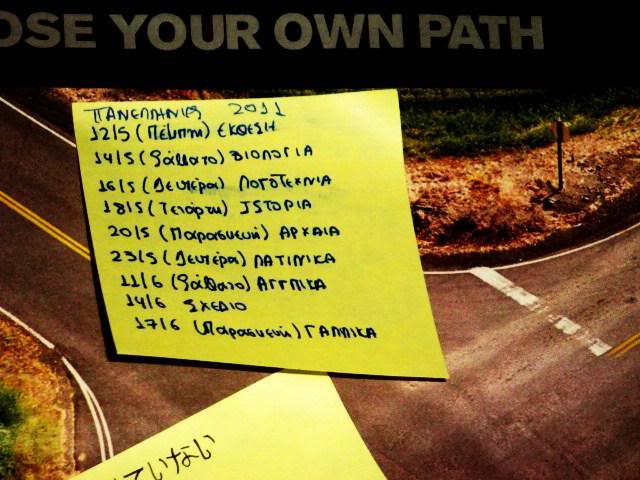 OSE YOUR OWN PATH
ΠΑΝΕΛΛΗΝΙΕΣ 2011
12/5 (Πέμπτη) ΕΚΘΕΣΗ
14/5 (Σάββατο) ΒΙΟΛΟΓΙΑ
16/5 (Δευτέρα) ΛΟΓΟΤΕΧΝΙΑ
18/5 (Τετάρτη) ΙSΤΟΡΙΑ
20/5 (Παρασκευή) ΑΡΧΑΙΑ
23/5 (Δευτέρα) ΛΑΤΙΝΙΚΑ
11/6 (Σάββατο) ΑΓΓΛΙΚΑ
14/6 ΣΧΕΔΙΟ
17/6 (Παρασκευή) ΓΑΛΛΙΚΑ
ていない